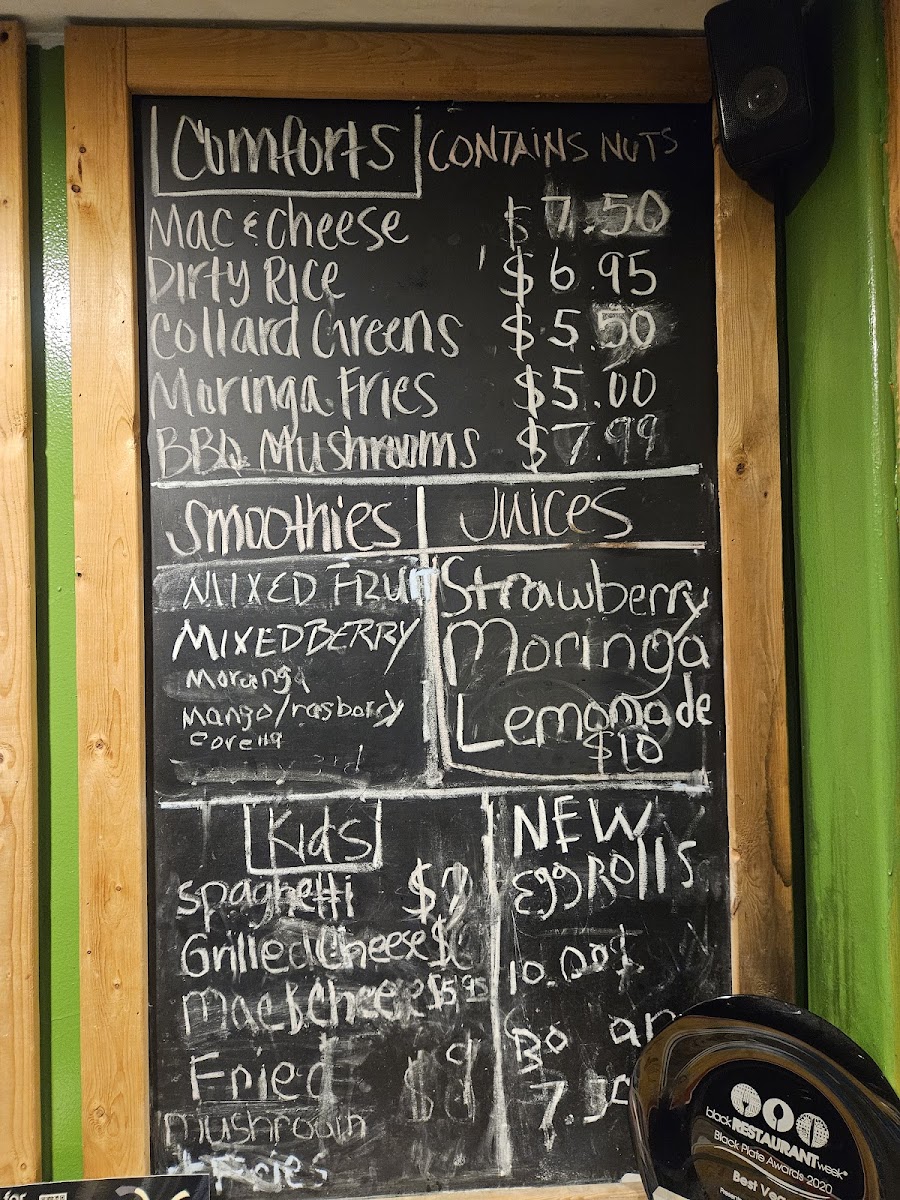 Comforts CONTAINS NUTS
Mac & cheese $7.50
Dirty Rice $6.95
Collard Greens $5.50
Moringa Fries $5.00
BBQ Mushrooms $7.99
Smoothies
MIXED FRUIT
MIXED BERRY
Moranga
Mango/rasborry
Juices
Strawberry
Moringa
Lemonade
$10
Kids
spaghetti $7
Grilled Cheese $
Mac & Cheese $5.95
Fried $9
mushroom
+ Fries
NEW
Egg Rolls
10.00
7.
blackRESTAURANTweek
Black Plate Awards 2020
Best
for